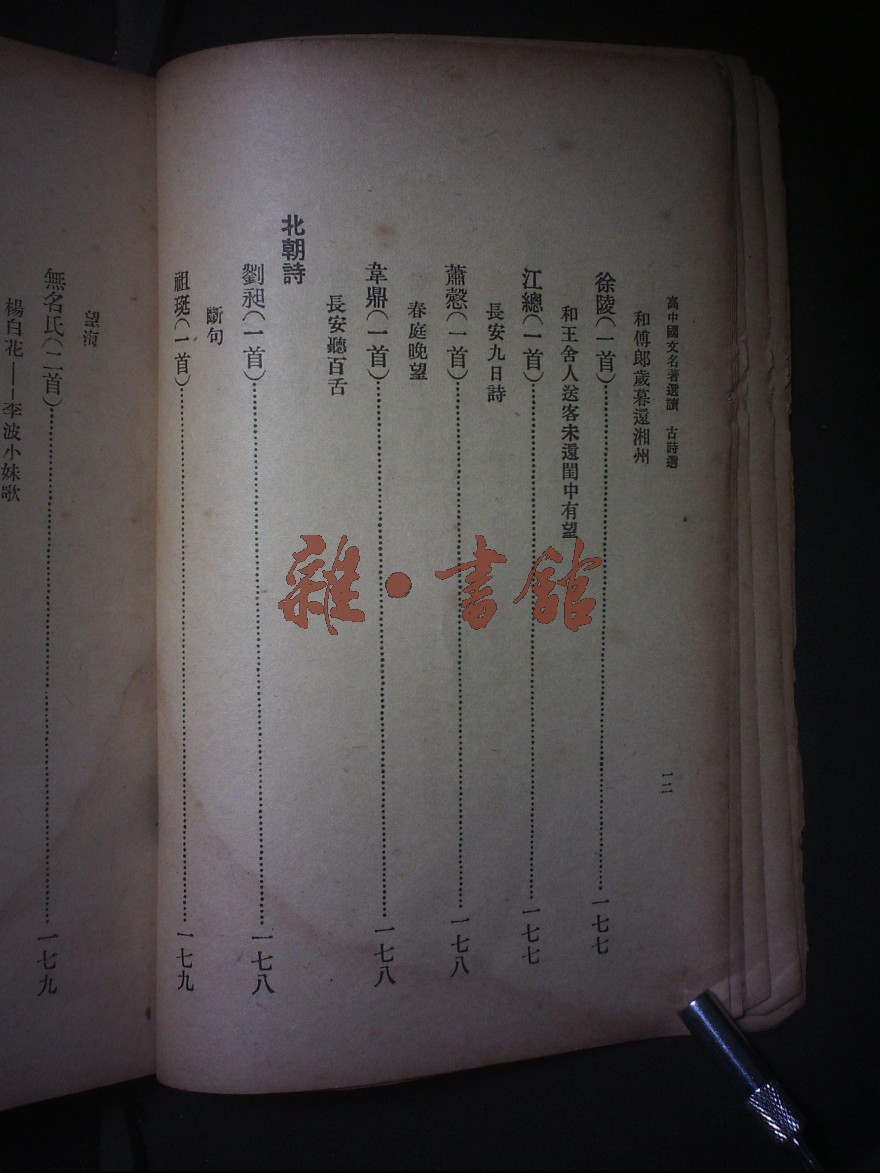 高中國文名著選讀　古詩選
一二
和傅郎歲暮還湘州
徐陵(一首)……一七七
和王舍人送客未還閨中有望
江總(一首)……一七七
長安九日詩
蕭慤(一首)……一七八
春庭晚望
韋鼎(一首)……一七八
長安聽百舌
北朝詩
劉昶(一首)……一七八
斷句
祖珽(一首)……一七九
望海
無名氏(二首)……一七九
楊白花——李波小妹歌
雜·書館